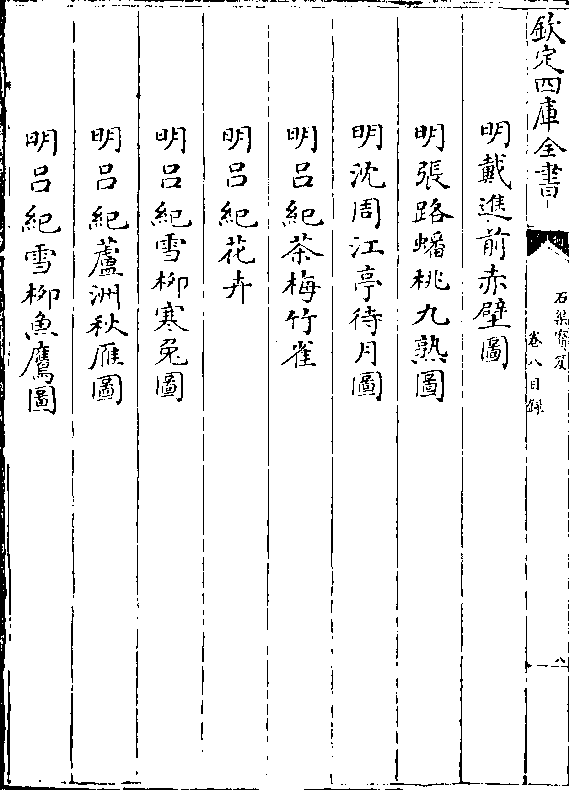 欽定四庫全書
石渠寶笈
卷八目錄
八
明戴進前赤壁圖
明張路蟠桃九熟圖
明沈周江亭待月圖
明呂紀茶梅竹雀
明呂紀花卉
明呂紀雪柳寒兔圖
明呂紀蘆洲秋雁圖
明呂紀雪柳魚鷹圖